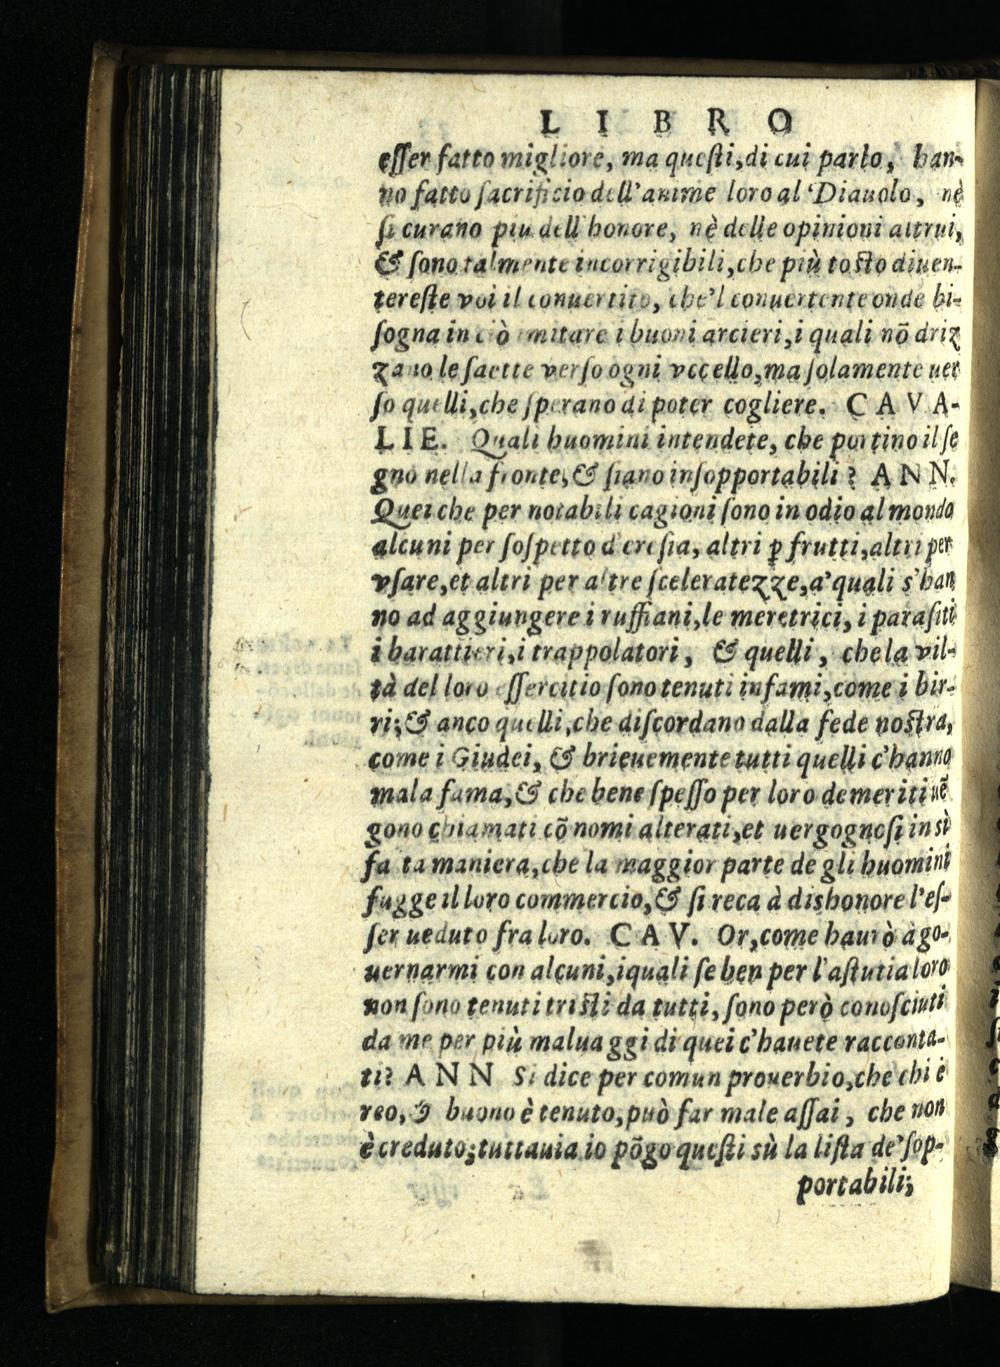 LIBRO
eſſer fatto migliore, ma queſti, di cui parlo, han-
no fatto ſacrificio dell'anime loro al Diauolo, nè
ſi curano piu dell'honore, nè delle opinioni altrui,
& ſono talmente incorrigibili, che più toſto diuen-
tereſte voi il conuertito, che'l conuertente onde bi-
ſogna in ciò imitare i buoni arcieri, i quali nõ driz
zano le ſaette verſo ogni vccello, ma ſolamente uer
ſo quelli, che ſperano di poter cogliere. CAVA-
LIE. Quali huomini intendete, che portino il ſe
gno nella fronte, & ſiano inſopportabili? ANN.
Quei che per notabili cagioni ſono in odio al mondo
alcuni per ſoſpetto d'ereſia, altri ꝑ frutti, altri per
vſare, et altri per altre ſceleratezze, a' quali s'han
no ad aggiungere i ruffiani, le meretrici, i paraſiti
i barattieri, i trappolatori, & quelli, che la vil-
tà del loro eſſercitio ſono tenuti infami, come i bir-
ri; & anco quelli, che diſcordano dalla fede noſtra,
come i Giudei, & brieuemente tutti quelli c'hanno
mala fama, & che bene ſpeſſo per loro demeriti uẽ
gono chiamati cõ nomi alterati, et uergognoſi in sì
fa ta maniera, che la maggior parte de gli huomini
fugge il loro commercio, & ſi reca à dishonore l'eſ-
ſer ueduto fra loro. CAV. Or, come haurò à go-
uernarmi con alcuni, iquali ſe ben per l'aſtutia loro
non ſono tenuti triſti da tutti, ſono però conoſciuti
da me per più maluaggi di quei c'hauete racconta-
ti? ANN Si dice per comun prouerbio, che chi è
reo, & buono è tenuto, può far male aſſai, che non
è creduto; tuttauia io põgo queſti sù la liſta de' ſop-
portabili;